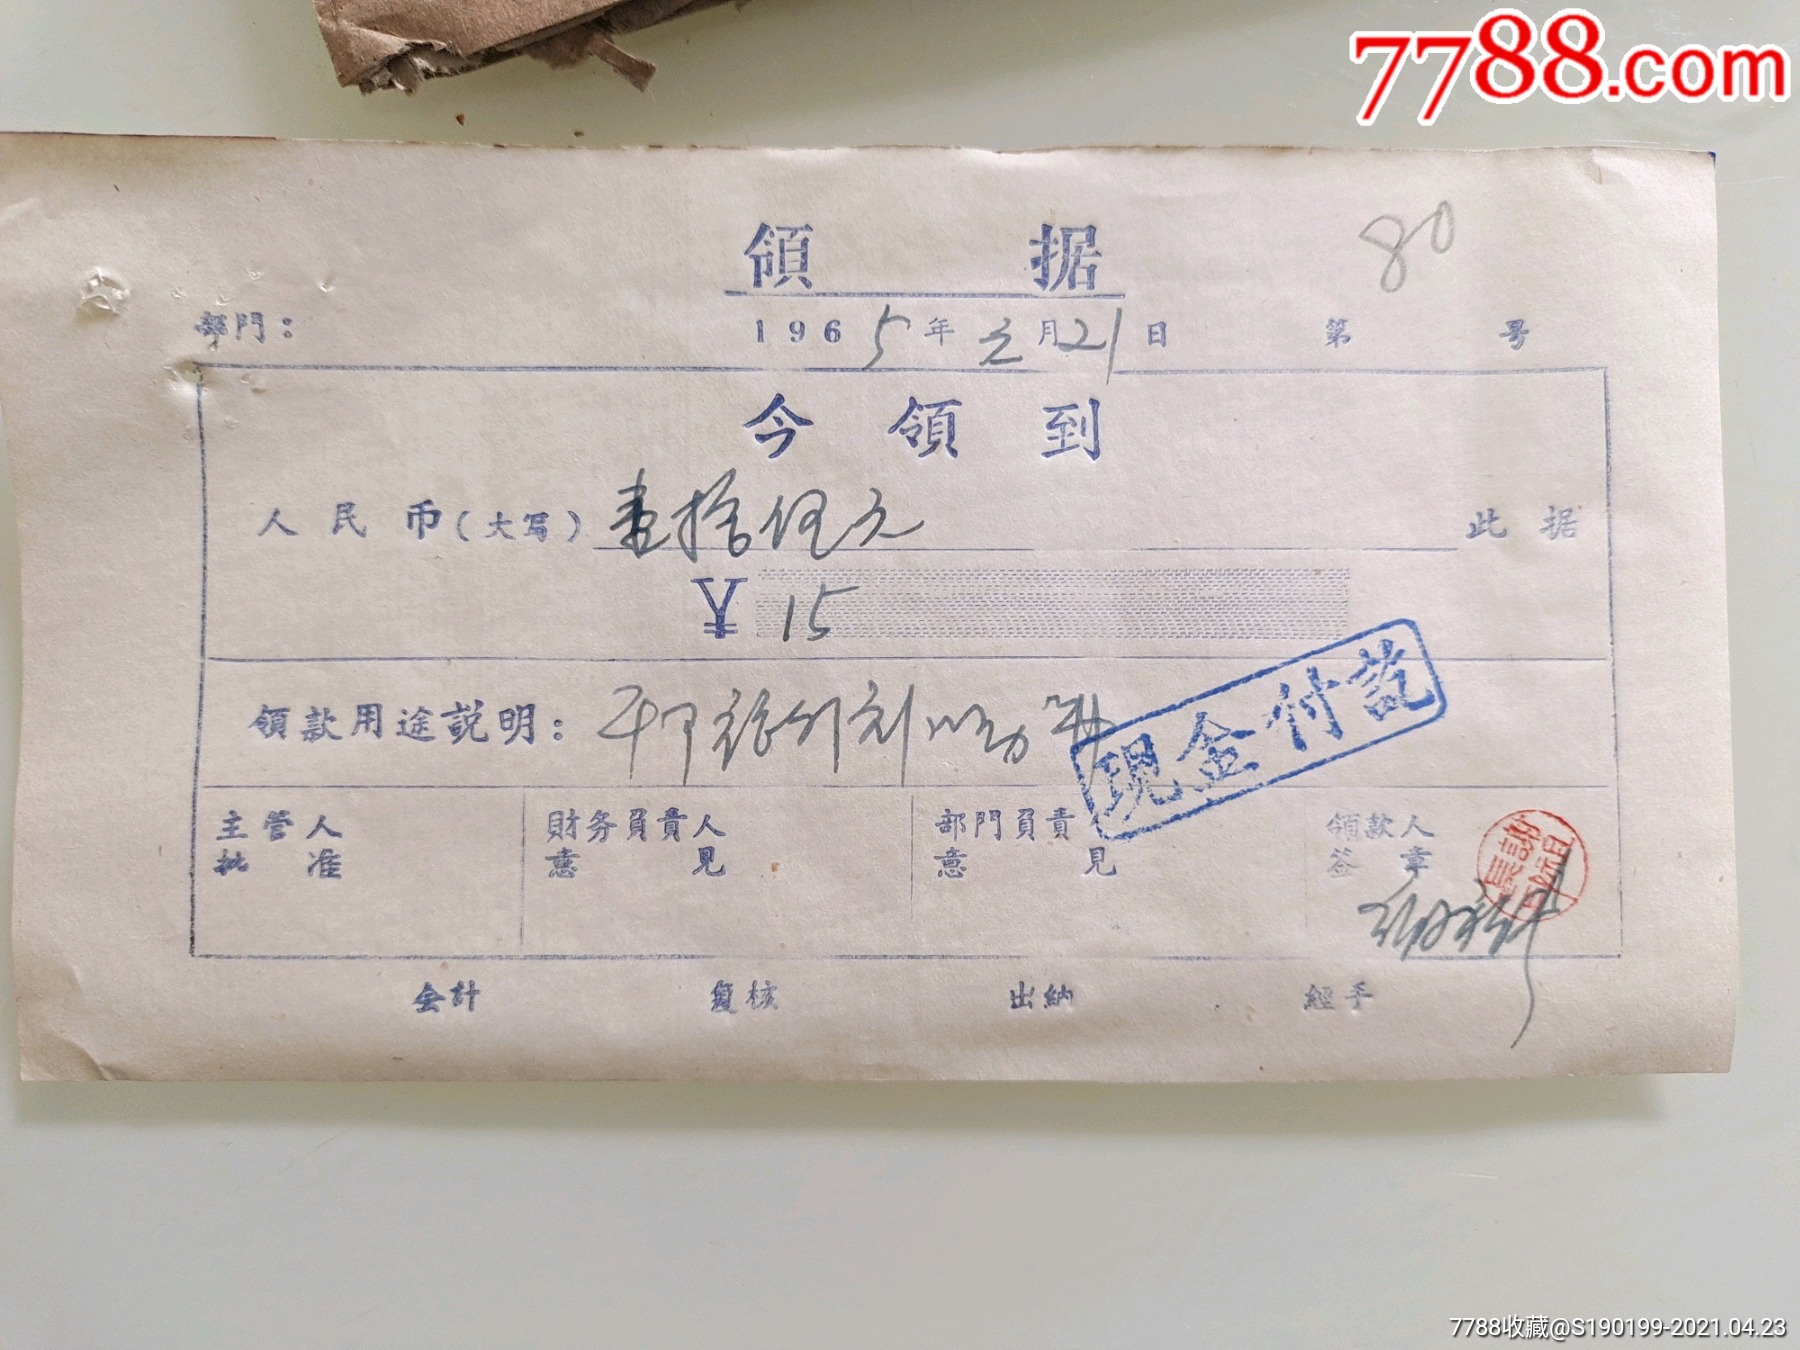 7788.com
80
領 据
部門：
1965年元月21日 第 号
今領到
人民币(大写) 壹拾伍元 此据
¥ 15
領款用途説明：
現金付訖
主管人批准
財务負責人意見
部門負責意見
領款人签章
会計 复核 出納 經手
7788收藏@S190199-2021.04.23